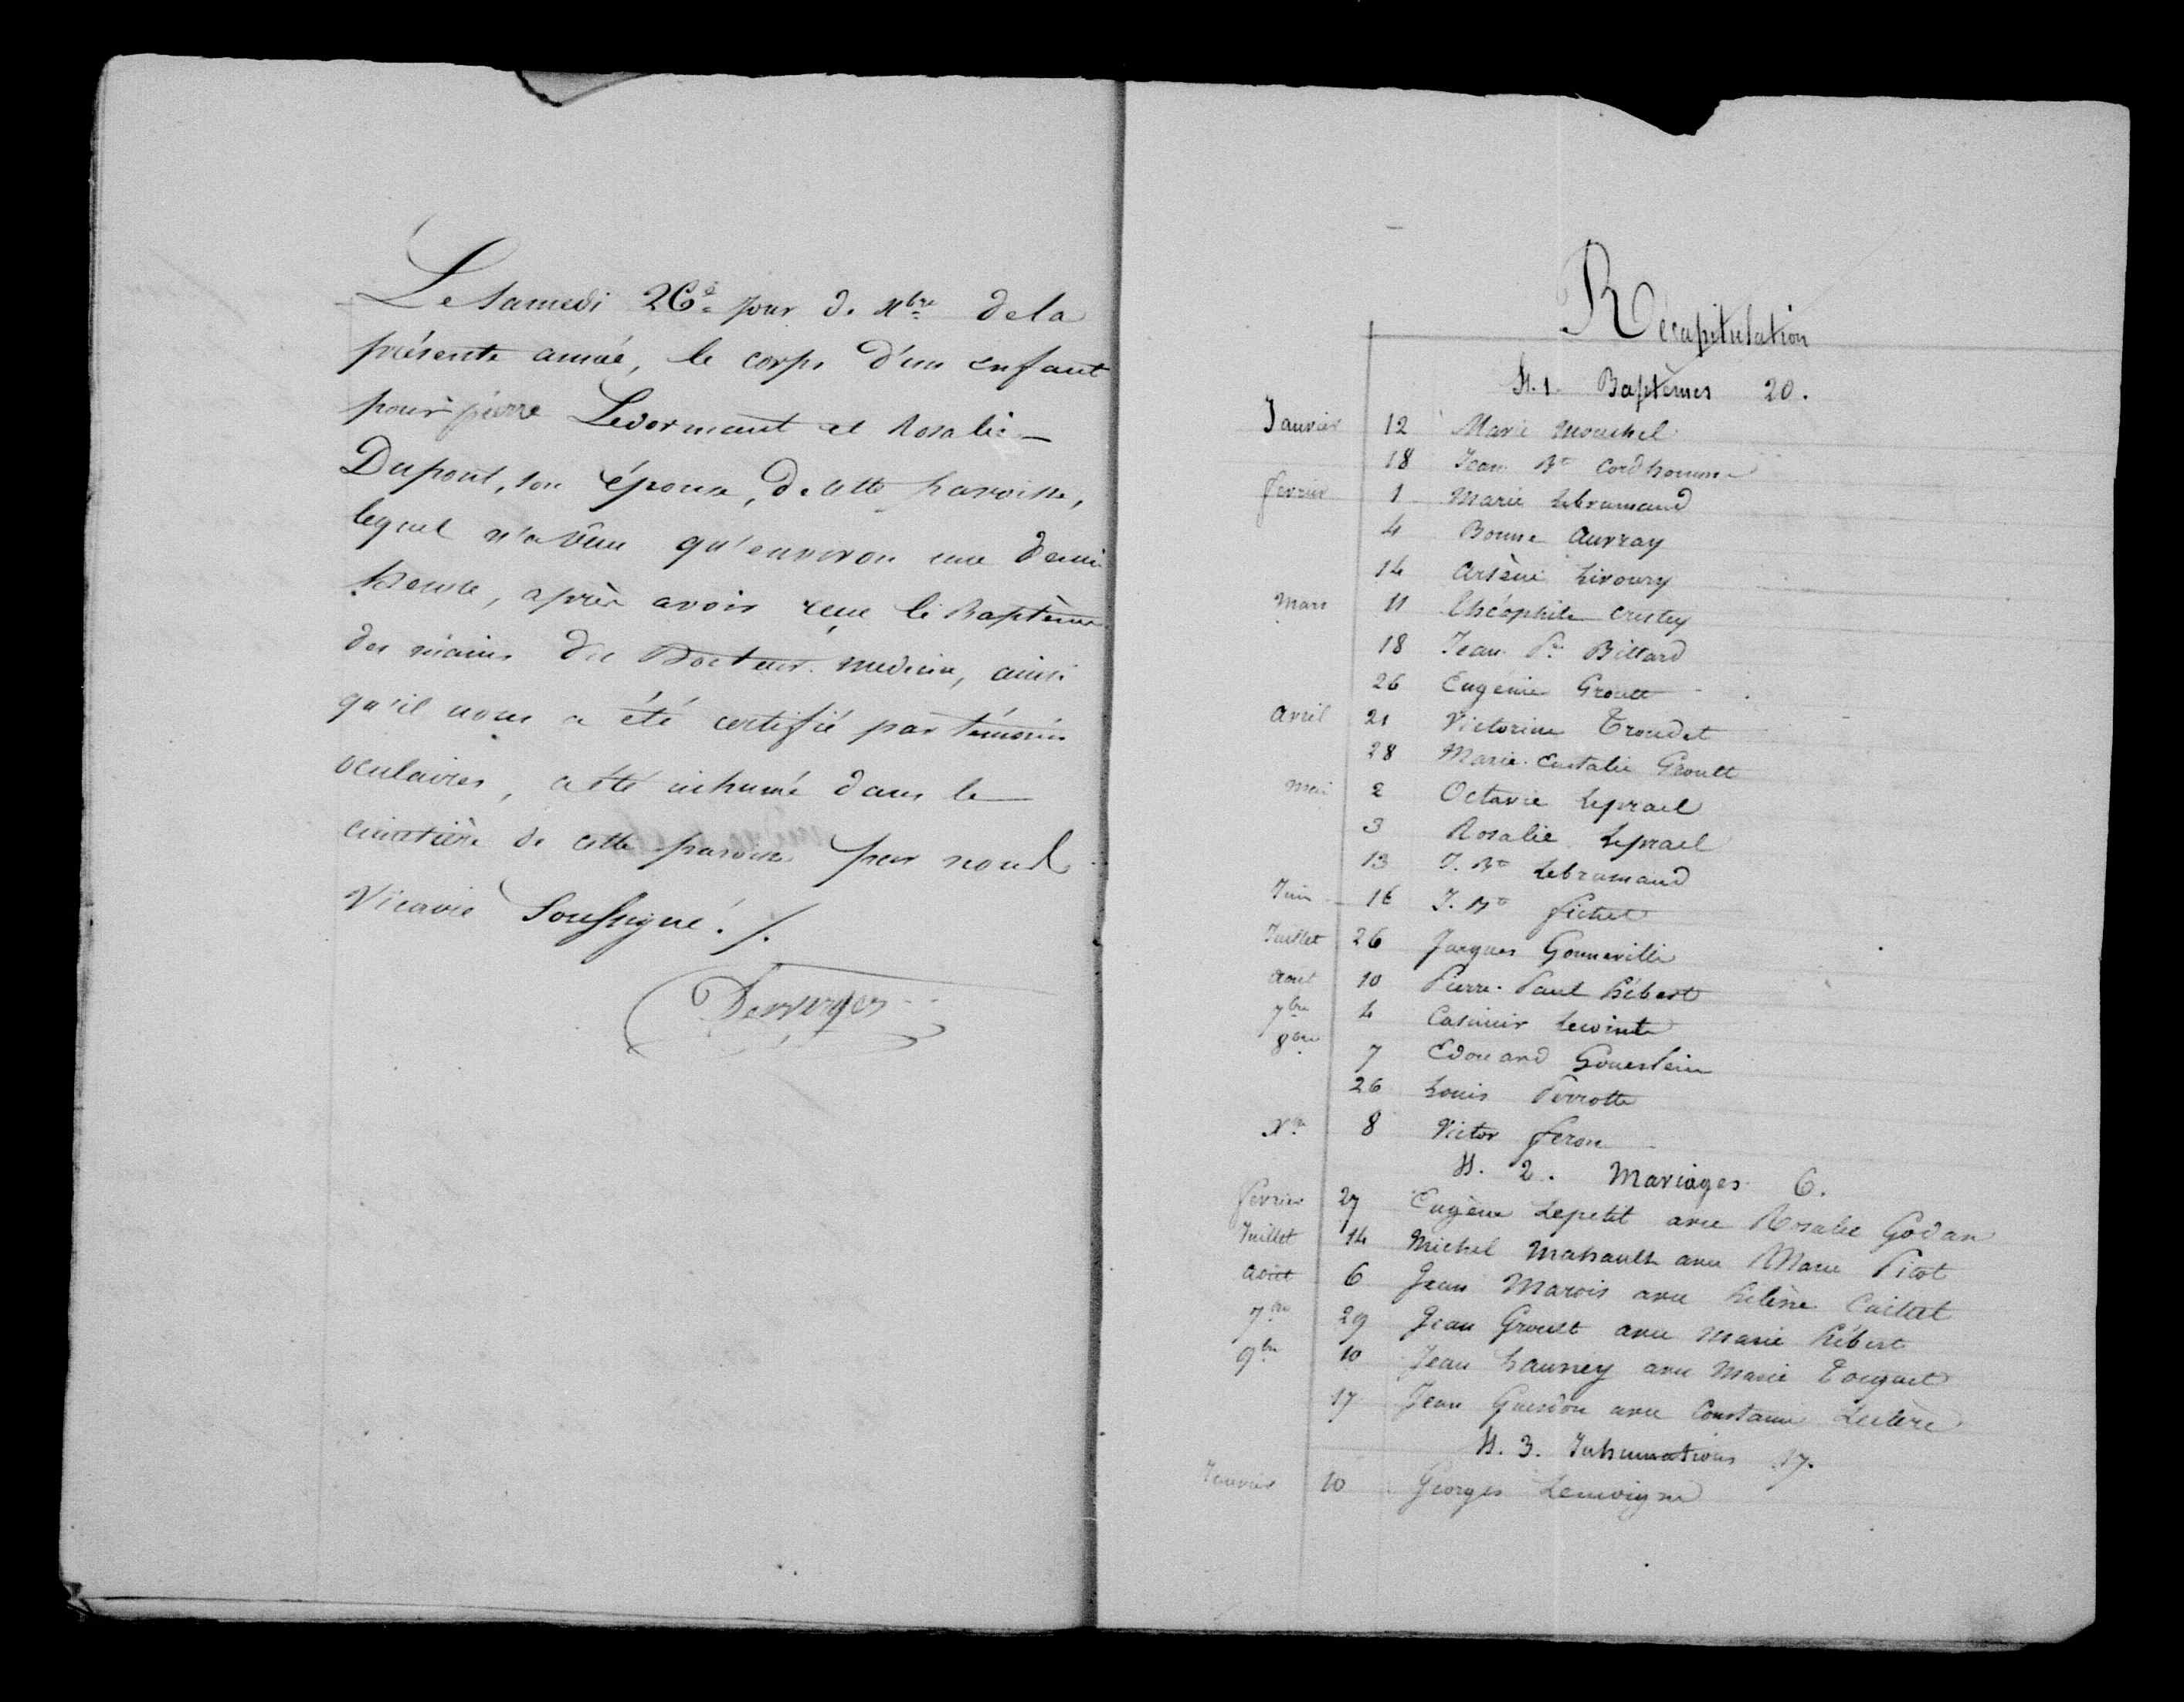 Le Samedi 26e jour de Xbre de la
présente année, le corps d'un enfant
pour pierre Ledormant et Rosalie
Dupont, son épouse, de cette paroisse,
lequel n'a vécu qu'environ une demi
heure, après avoir reçu le Baptême
des mains du Docteur medecin, ainsi
qu'il nous a été certifié par témoins
oculaires, a été inhumé dans le
cimetière de cette paroisse par nous
Vicaire Soussigné ./.
Récapitulation
N. 1. Baptêmes 20.
Janvier 12 Marie Mouchel
18 Jean Bte Cordhomme
fevrier 1 Marie Lebrumand
4 Bonne Auvray
14 Arsène Livoury
Mars 11 Théophile Crestey
18 Jean Pre Billard
26 Eugenie Groult
Avril 21 Victorine Troudet
28 Marie Eustalie Groult
Mai 2 Octavie Leprael
3 Rosalie Leprael
13 J. Bte Lebrumand
Juin 16 J. Bte fichet
Juillet 26 Jacques Gonneville
Aout 10 Pierre Paul hébert
7bre 4 Casimir Lecointe
8bre 7 Edouard Goueslain
26 Louis Perrotte
Xbre 8 Victor feron
N. 2. Mariages 6.
fevrier 27 Eugène Lepetit avec Rosalie Godan
Juillet 14 Michel Mahault avec Marie Picot
Aout 6 Jean Marois avec hélène Caillat
7bre 29 Jean Groult avec Marie hébert
9bre 10 Jean Launey avec Marie Touquet
17 Jean Guesdon avec Constance Leclère
N. 3. Inhumations 17.
Janvier 10 Georges